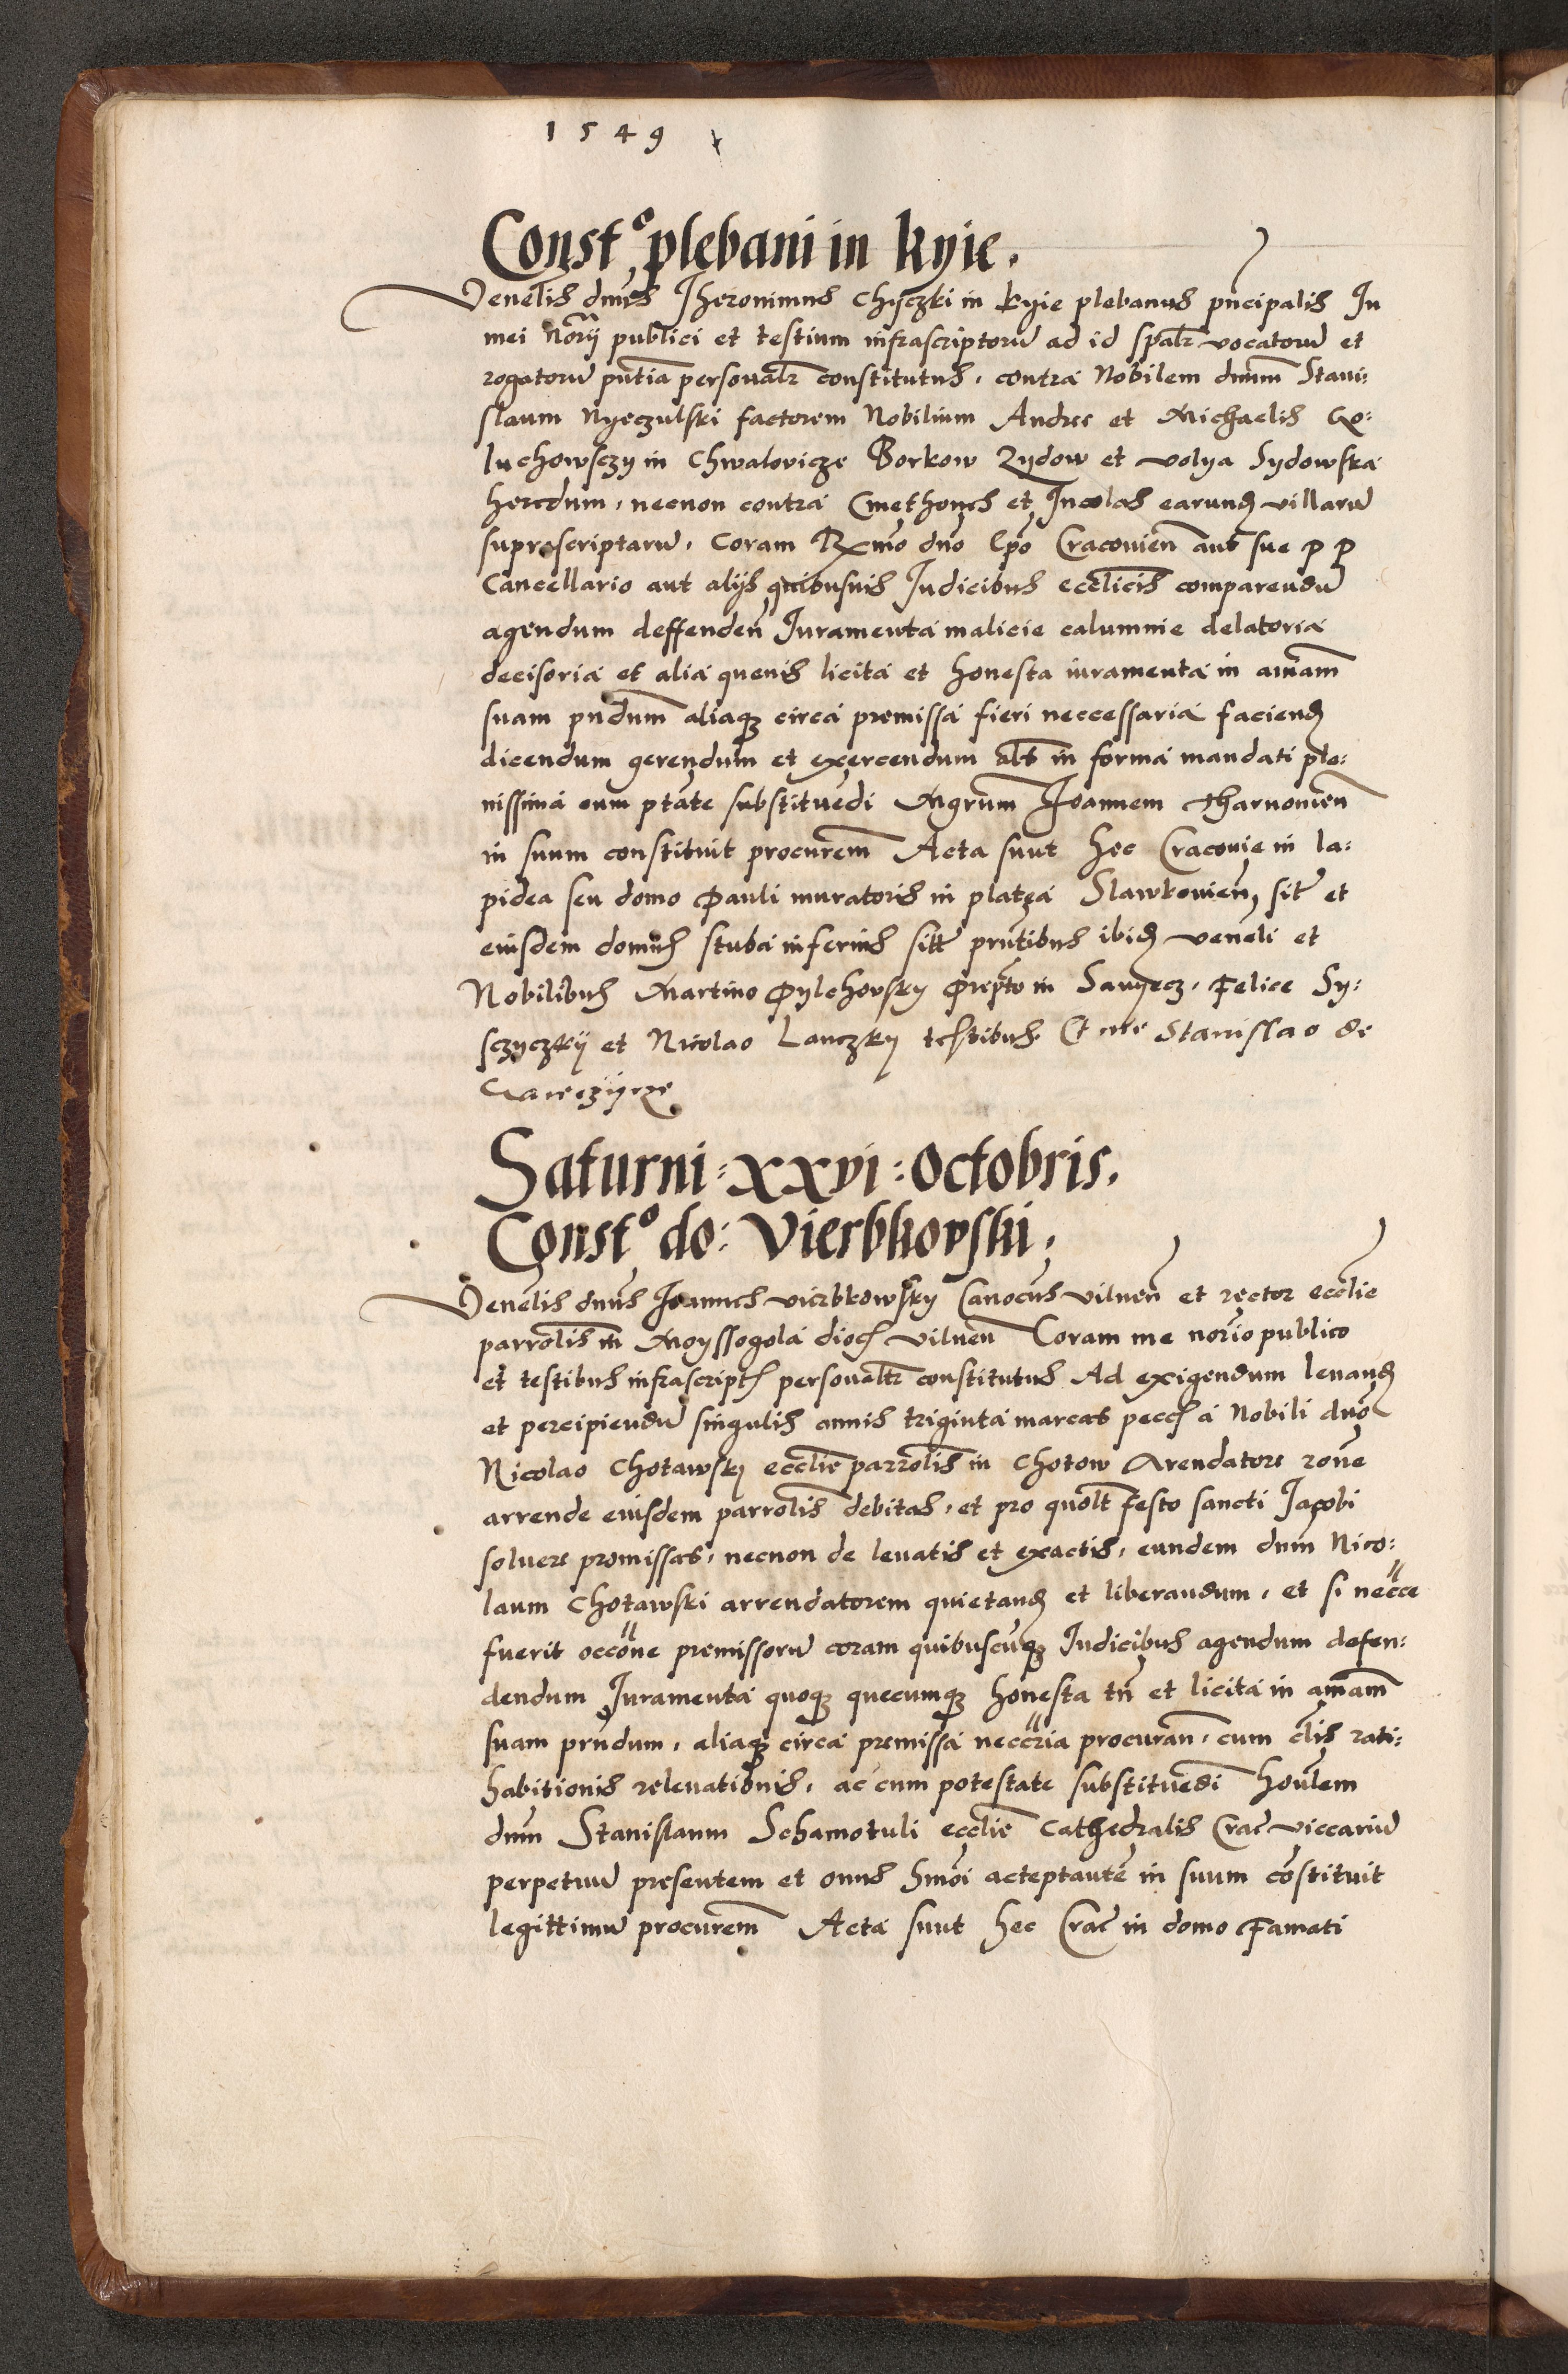 1549
Constº plebani in kyie.
Venelis dnus Jheronimus Chyczki in kyie plebanus pncipalis In
mei Norij publici et testium infrascriptoru ad id spalr vocatoru et
rogatoru pntia personalr constitutus, contra Nobilem dnum Stani:
slaum Nyeczulski factorem Nobilium Andree et Michaelis Go:
luchowsczy in Chwalovicze Borkow Zydow et volya Sydowska
heredum, necnon contra Cmethones et Incolas earund villaru
suprascriptaru, Coram Rxmo dno Epo Cracovien aut sue P P
Cancellario aut alijs quibusvis Judicibus ecclicis comparendu
agendum deffenden Juramenta malicie calumnie delatoria
decisoria et alia quevis licita et honesta iuramenta in animam
suam pndum aliaqz circa premissa fieri neccessaria faciend
dicendum gerendum et exercendum als in forma mandati ple:
nissima cum ptate substituedi Mgrum Joannem Tharnovien
in suum constituit procurem Acta sunt hec Cracovie in la:
pidea seu domo Pauli muratoris in platea Slawkovien, sit et
eiusdem domus stuba inferius sitt pntibus ibid veneli et
Nobilibus Martino Pylchovsky prepto in Sanyecz, Felice Sy:
sczyczkij et Nicolao Lanczky testibus Et me Stanislao de

Saturni = xxvi : octobris.
Constº do: Vierbkovski,
Venelis dnus Joannes vierbkowsky Canocus vilnen et rector ecclie
parrolis in Moyssogola dioc vilnen Coram me norio publico
et testibus infrascript personaltr constitutus Ad exigendum levand
et percipiendu singulis annis triginta marcas pecc a Nobili dno
Nicolao Chotawsky ecclie parrolis in Chotow Arendatore rone
arrende eiusdem parrolis debitas, et pro quolt festo sancti Jacobi
solvere promissas, necnon de levatis et exactis, eundem dnm Nico:
laum Chotawski arrendatorem quietand et liberandum, et si necce
fuerit occone premissoru coram quibuscuqz Judicibus agendum defen:
dendum Juramenta quoqz quecumqz honesta tn et licita in amam
suam prndum, aliaqz circa premissa neccria procuran, cum clis rati:
habitionis relevationis, ac cum potestate substituedi honlem
dnm Stanislaum Schamotuli ecclie Cathedralis Crac viccariu
perpetuu presentem et onus hmoi acteptante in suum costituit
legittimu procurem Acta sunt hec Crac in domo Famati